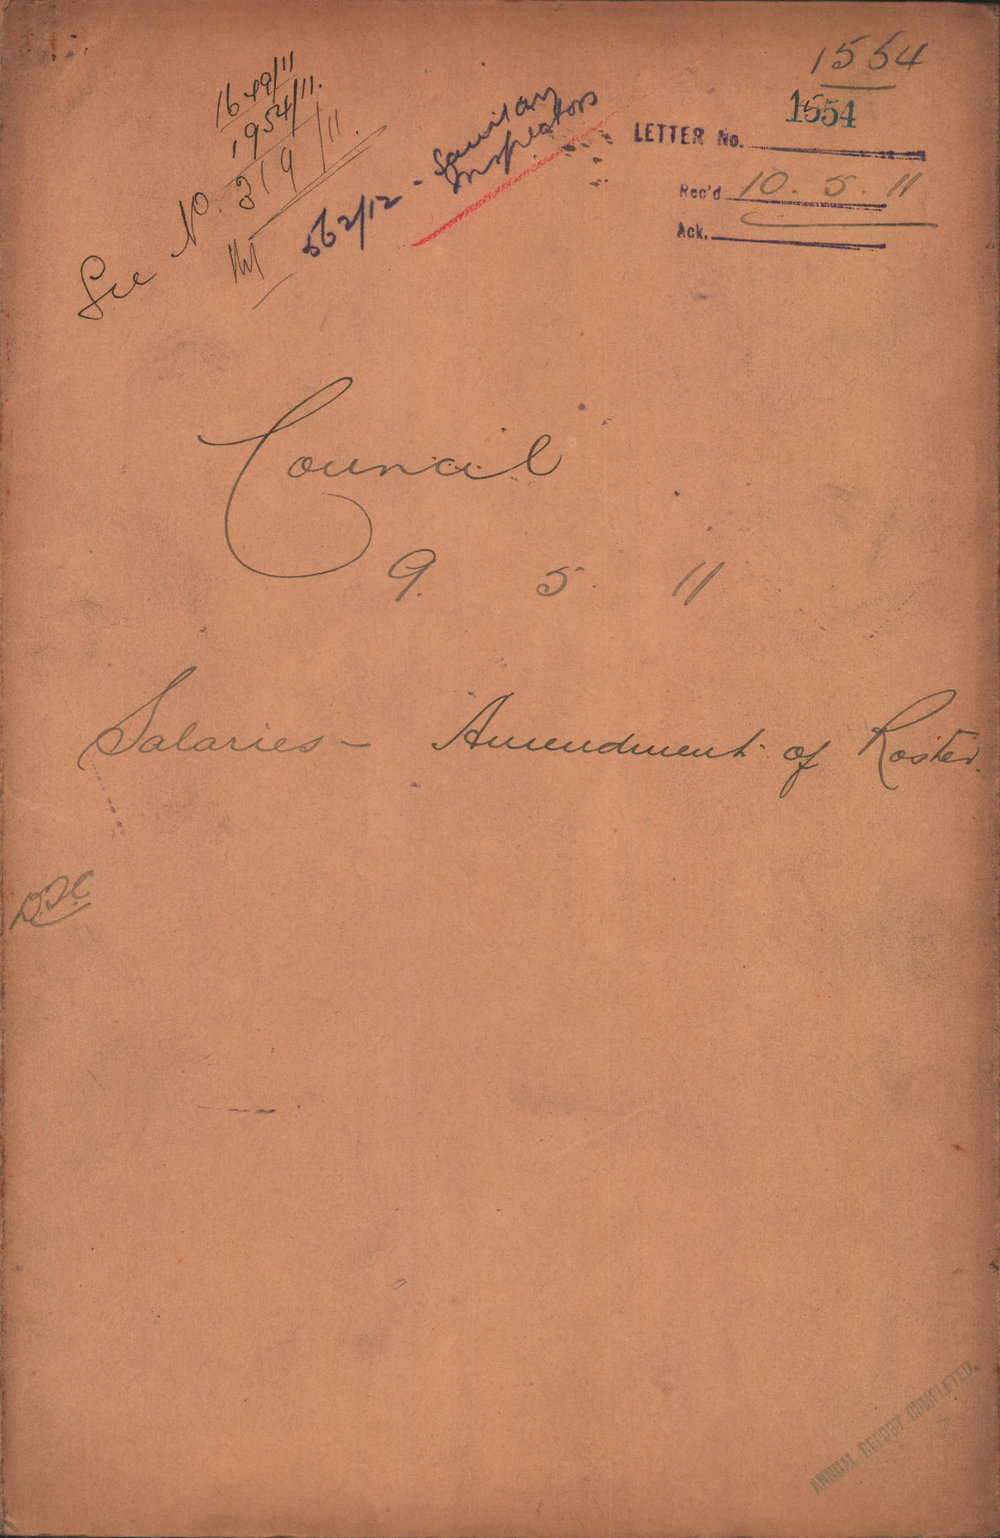 1554
1554
LETTER No.
Rec'd 10. 5. 11
Ack.
1649/11
1954/11.
See No. 319/11.
562/12 - Sanitary
Inspectors
Council
9. 5. 11
Salaries - Amendment of Roster.
ANNUAL REPORT COMPLETED.